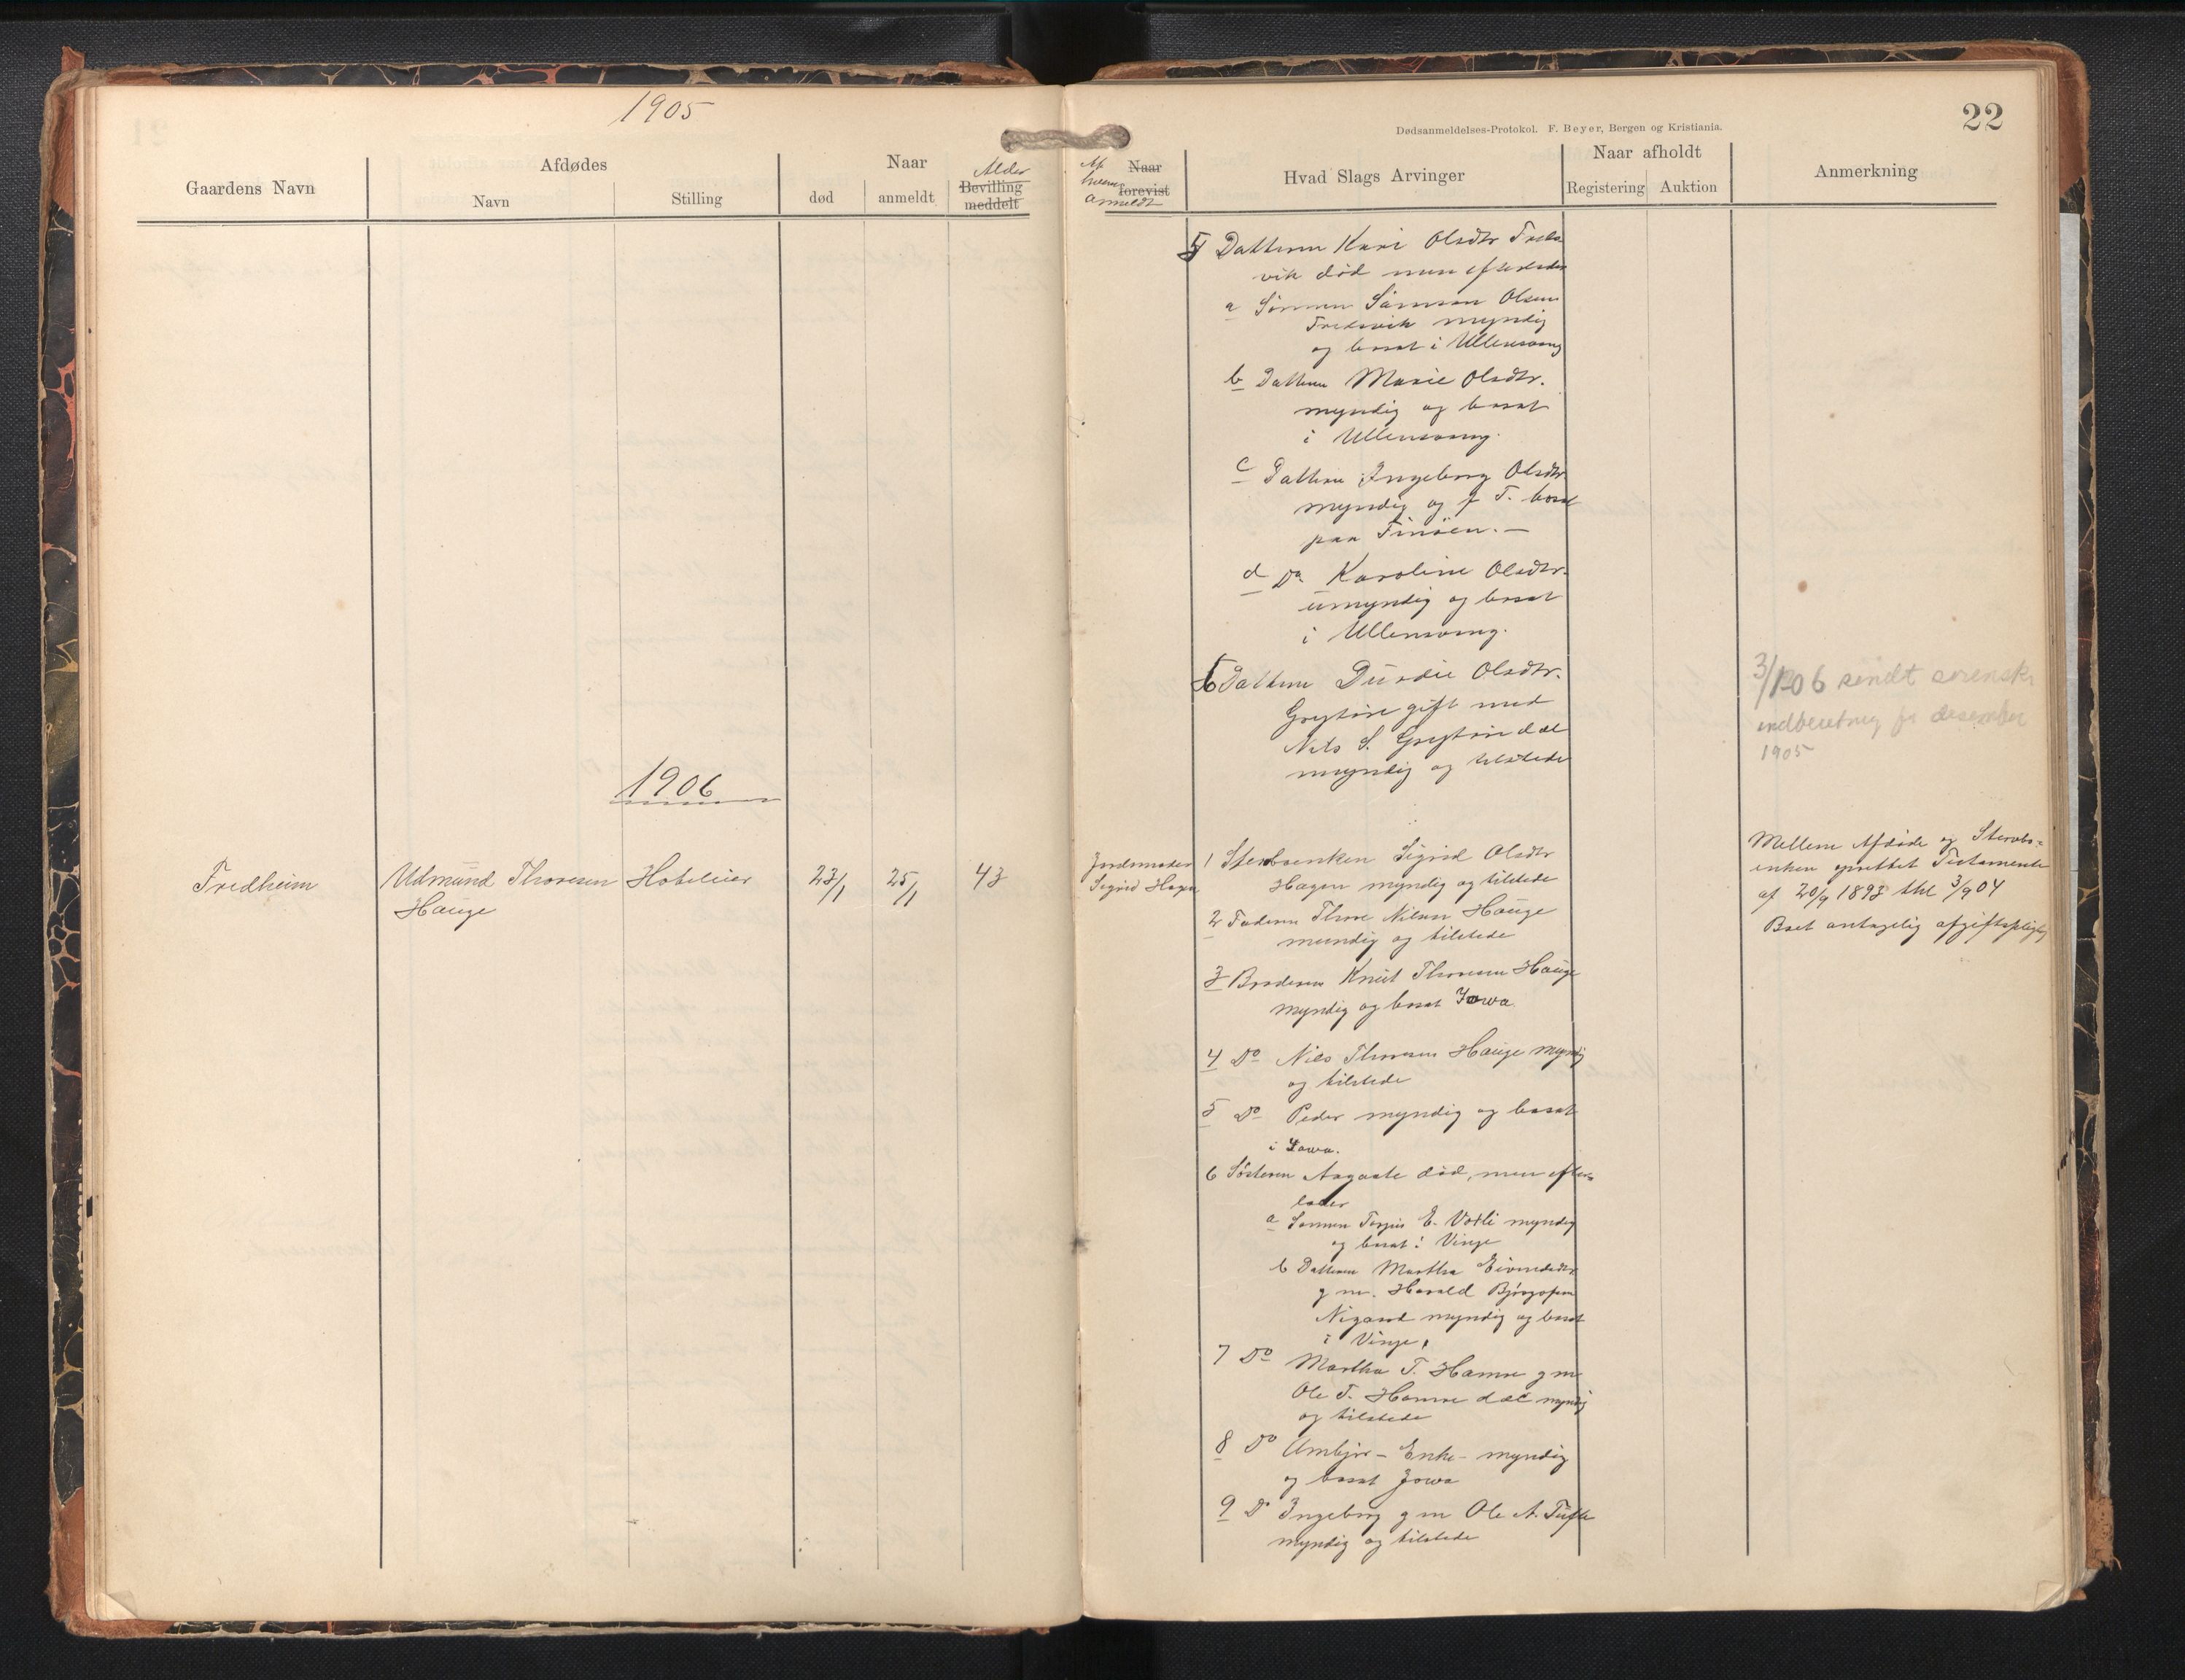 1905
Gaardens Navn
Afdødes
Navn
Stilling
Naar
død
anmeldt
Alder
Bevilling
meddelt
1906
Fredheim
Udmund Thoresen
Hauge
Hoteleier
23/1
25/1
43
22
Dødsanmeldelses-Protokol. F. Beyer, Bergen og Kristiania.
Af
hvem
anmeldt
Naar
forevist
Hvad Slags Arvinger
Naar afholdt
Registering
Auktion
Anmerkning
5 Datteren Kari Olsdtr
vik død men efterlader
a Sønnen Samson Olsen
myndig
og bosat i Ullensvang
b Datteren Marie Olsdtr.
myndig og bosat
i Ullensvang.
c Datteren Ingeborg Olsdtr
myndig og p T. bosat
paa Finöen. —
d Do Karoline Olsdtr.
umyndig og bosat
i Ullensvang.
6 Datteren Durdei Olsdtr.
gift med
Nils S. dæl
myndig og tilstede
3/1-06 sendt svensk
indberetning for desember
1905
Jordemoder
Sigrid Hagen
1 Sterboenken Sigrid Olsdtr
Hagen myndig og tilstede
2 Faderen Thore Nilsen Hauge
mundig og tilstede
3 Broderen Knut Thoresen Hauge
myndig og bosat Iowa.
4 Do Nils Thoresen Hauge myndig
og tilstede
5 Do Peder myndig og bosat
i Iowa.
6 Søsteren Aagaate død, men efter
lader
a Sønnen Torjus E. Vaali myndig
og bosat i Vinje
b Datteren Martha Eivindsdtr
g m. Harald Bjørgofsen
Nigard myndig og bosat
i Vinje,
7 Do Martha T. Hamre g m
Ole T. Hamre dæl myndig
og tilstede
8 Do Ambjør – Enke – myndig
og bosat Jowa
9 Do Ingeborg g m Ole A. Tufte
myndig og tilstede
Mellem Afdøde og Sterbo-
enken oprettet Testamente
af 20/9 1893 thl 3/9 04
Boet antagelig afgiftspligtig